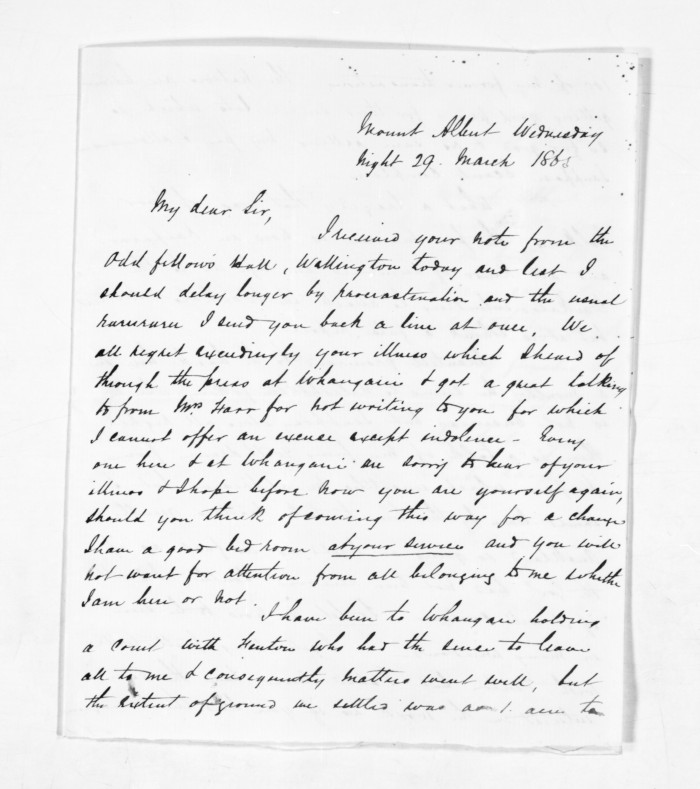 Mount Albert Wednesday
night 29. March 186
My dear Sir,
I received your note from the
Odd fellows Hall, Wellington today and lest I
should delay longer by procrastination and the usual
raruraru I send you back a line at once. We
all regret exceedingly your illness which I heard of
through the press at Whangarei & got a great talking
to from Mrs Farr for not writing to you for which
I cannot offer an excuse except indolence - Every
one here & at Whangarei are sorry to hear of your
illness & I hope before now you are yourself again,
should you think of coming this way for a change
I have a good bed room at your service and you will
not want for attention from all belonging to me whether
I am here or not.
I have been to Whangarei holding
a court with Fenton who had the sense to leave
all to me & consequently matters went well, but
the extent of ground we settled was as 1. acre to